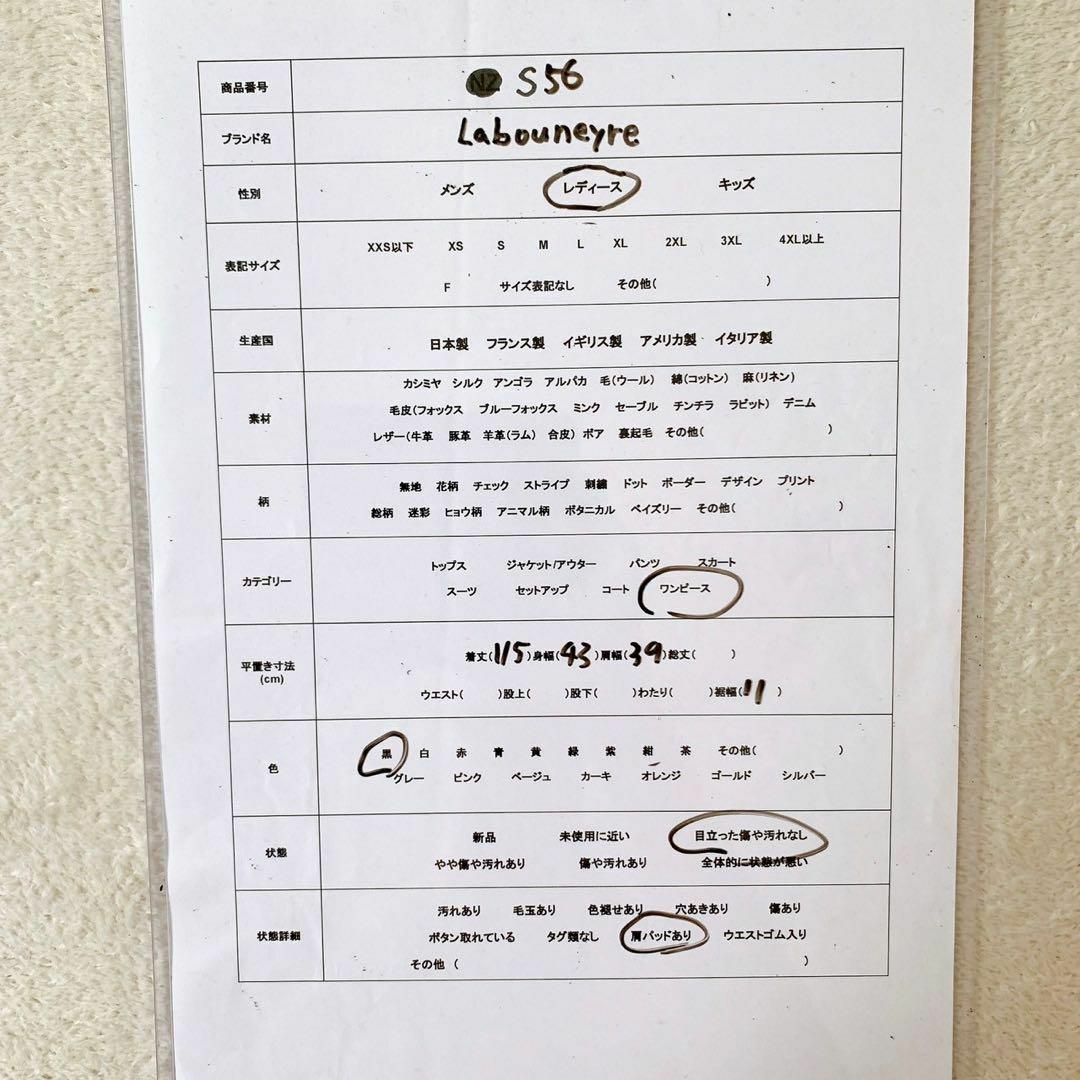 商品番号 NZ S56
ブランド名 Labouneyre
性別 メンズ レディース キッズ
表記サイズ
XXS以下 XS S M L XL 2XL 3XL 4XL以上
F サイズ表記なし その他( )
生産国 日本製 フランス製 イギリス製 アメリカ製 イタリア製
素材
カシミヤ シルク アンゴラ アルパカ 毛(ウール) 綿(コットン) 麻(リネン)
毛皮(フォックス ブルーフォックス ミンク セーブル チンチラ ラビット) デニム
レザー(牛革 豚革 羊革(ラム) 合皮) ボア 裏起毛 その他( )
柄
無地 花柄 チェック ストライプ 刺繍 ドット ボーダー デザイン プリント
総柄 迷彩 ヒョウ柄 アニマル柄 ボタニカル ペイズリー その他( )
カテゴリー
トップス ジャケット/アウター パンツ スカート
スーツ セットアップ コート ワンピース
平置き寸法
(cm)
着丈(115)身幅(43)肩幅(39)総丈( )
ウエスト( )股上( )股下( )わたり( )裾幅(11 )
色
黒 白 赤 青 黄 緑 紫 紺 茶 その他( )
グレー ピンク ベージュ カーキ オレンジ ゴールド シルバー
状態
新品 未使用に近い 目立った傷や汚れなし
やや傷や汚れあり 傷や汚れあり 全体的に状態が悪い
状態詳細
汚れあり 毛玉あり 色褪せあり 穴あきあり 傷あり
ボタン取れている タグ類なし 肩パッドあり ウエストゴム入り
その他 ( )